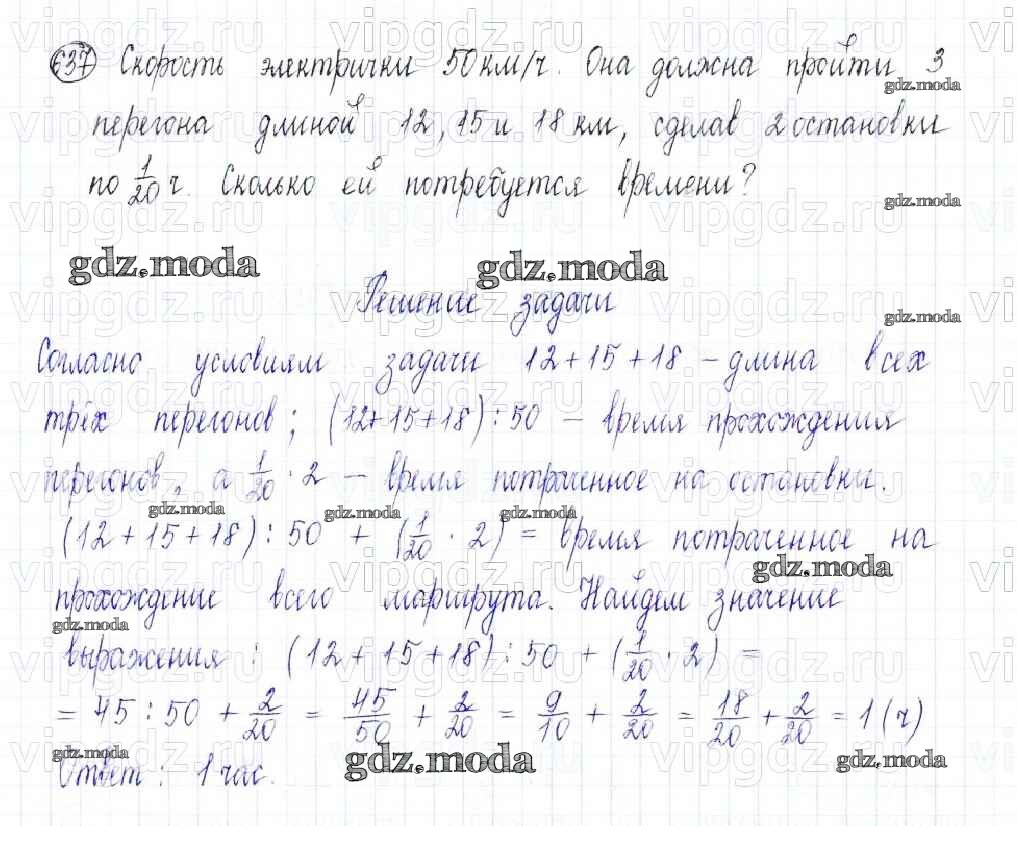 637 Скорость электрички 50 км/ч. Она должна пройти 3
gdz.moda
перегона длиной 12, 15 и 18 км, сделав 2 остановки
по 1/20 ч. Сколько ей потребуется времени?
gdz.moda
gdz.moda gdz.moda
Решение задачи
gdz.moda
Согласно условиям задачи 12 + 15 + 18 – длина всех
трёх перегонов; (12+15+18) : 50 – время прохождения
перегонов, а 1/20 · 2 – время потраченное на остановки.
gdz.moda gdz.moda gdz.moda
(12 + 15 + 18) : 50 + (1/20 · 2) = время потраченное на
gdz.moda
прохождение всего маршрута. Найдем значение
gdz.moda
выражения : (12 + 15 + 18) : 50 + (1/20 · 2) =
= 45 : 50 + 2/20 = 45/50 + 2/20 = 9/10 + 2/20 = 18/20 + 2/20 = 1 (ч)
gdz.moda gdz.moda gdz.moda
Ответ : 1 час.